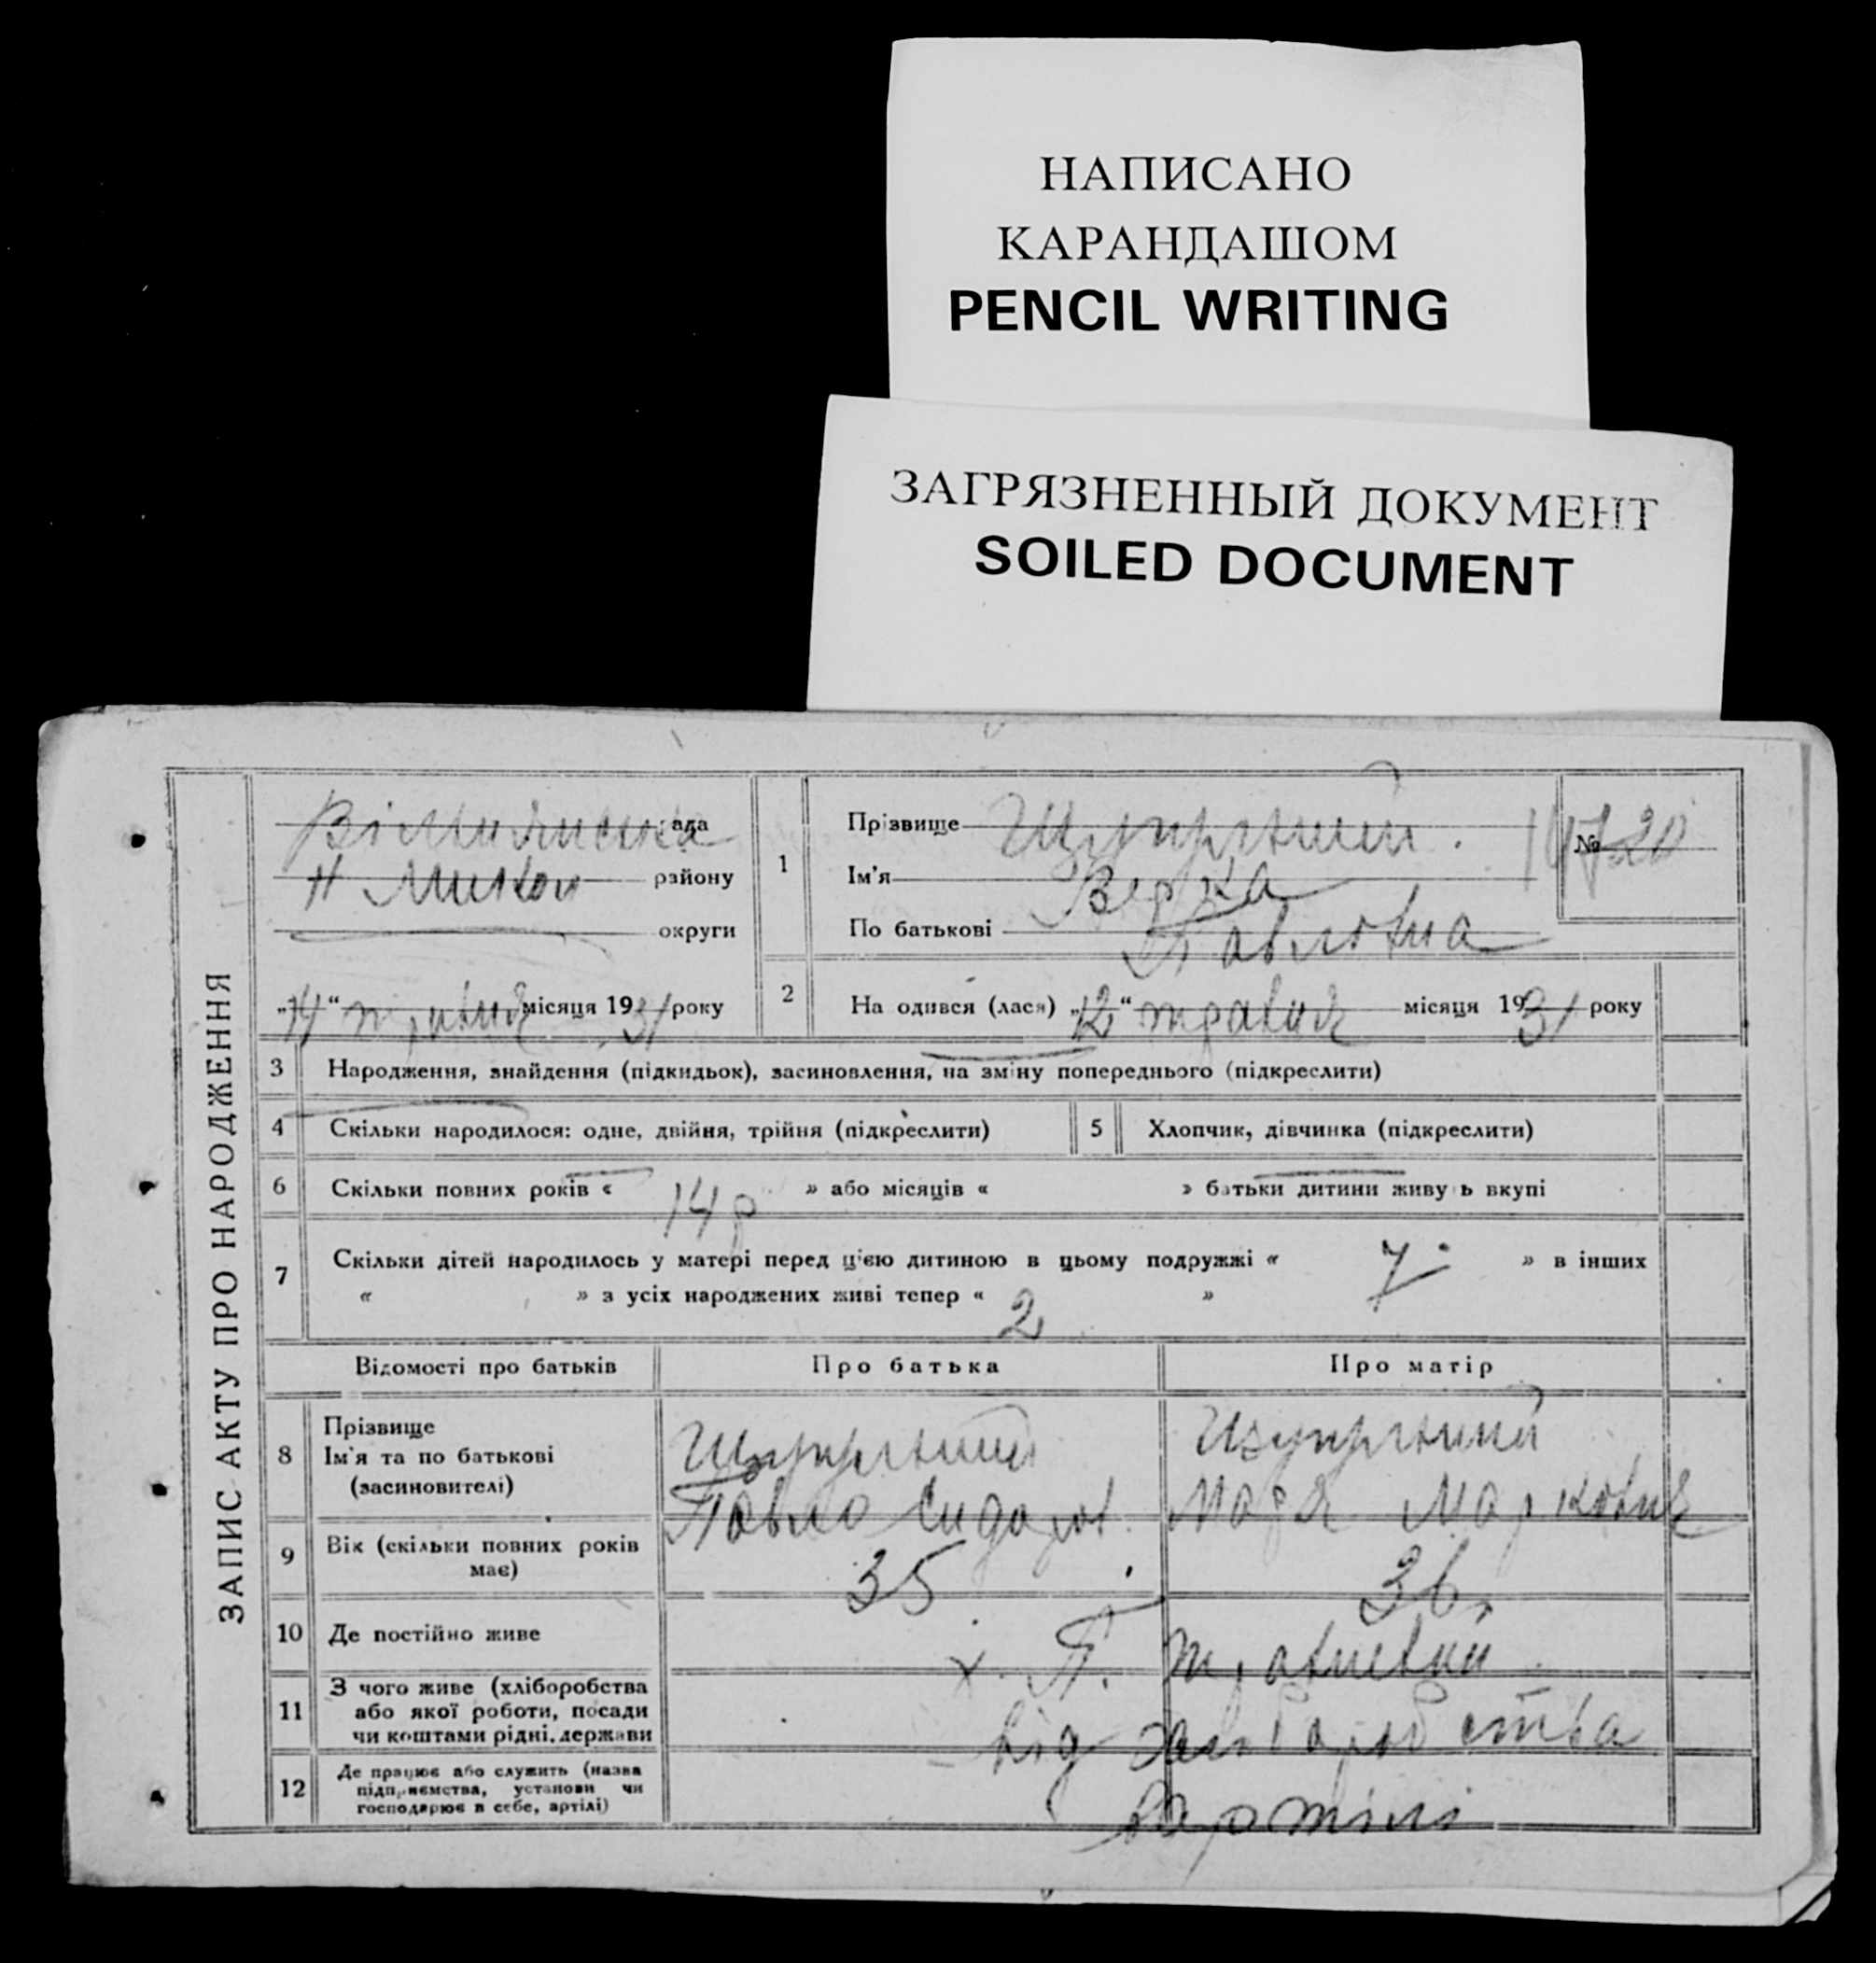 НАПИСАНО
КАРАНДАШОМ
PENCIL WRITING
ЗАГРЯЗНЕННЫЙ ДОКУМЕНТ
SOILED DOCUMENT
ЗАПИС АКТУ ПРО НАРОДЖЕННЯ
рада
району
округи
„14“ травня місяця 1931 року
1
Прізвище
№ 20
Ім'я Вера
По батькові Павловна
2
Народився (лася) „12“ травня місяця 1931 року
3 Народження, знайдення (підкидьок), засиновлення, на зміну попереднього (підкреслити)
4 Скільки народилося: одне, двійня, трійня (підкреслити)
5 Хлопчик, дівчинка (підкреслити)
6 Скільки повних років « 14 р » або місяців « » батьки дитини живуть вкупі
7 Скільки дітей народилось у матері перед цією дитиною в цьому подружжі « 7 » в інших
« » з усіх народжених живі тепер « 2 »
Відомості про батьків Про батька Про матір
8 Прізвище
Ім'я та по батькові
(засиновителі)
Павло Сидоров. Маря Марковна
9 Вік (скільки повних років
має)
35 36
10 Де постійно живе х. П.
11 З чого живе (хліборобства
або якої роботи, посади
чи коштами рідні, держави
від хліборобства
12 Де працює або служить (назва
підприємства, установи чи
господарює в себе, артілі)
в артілі